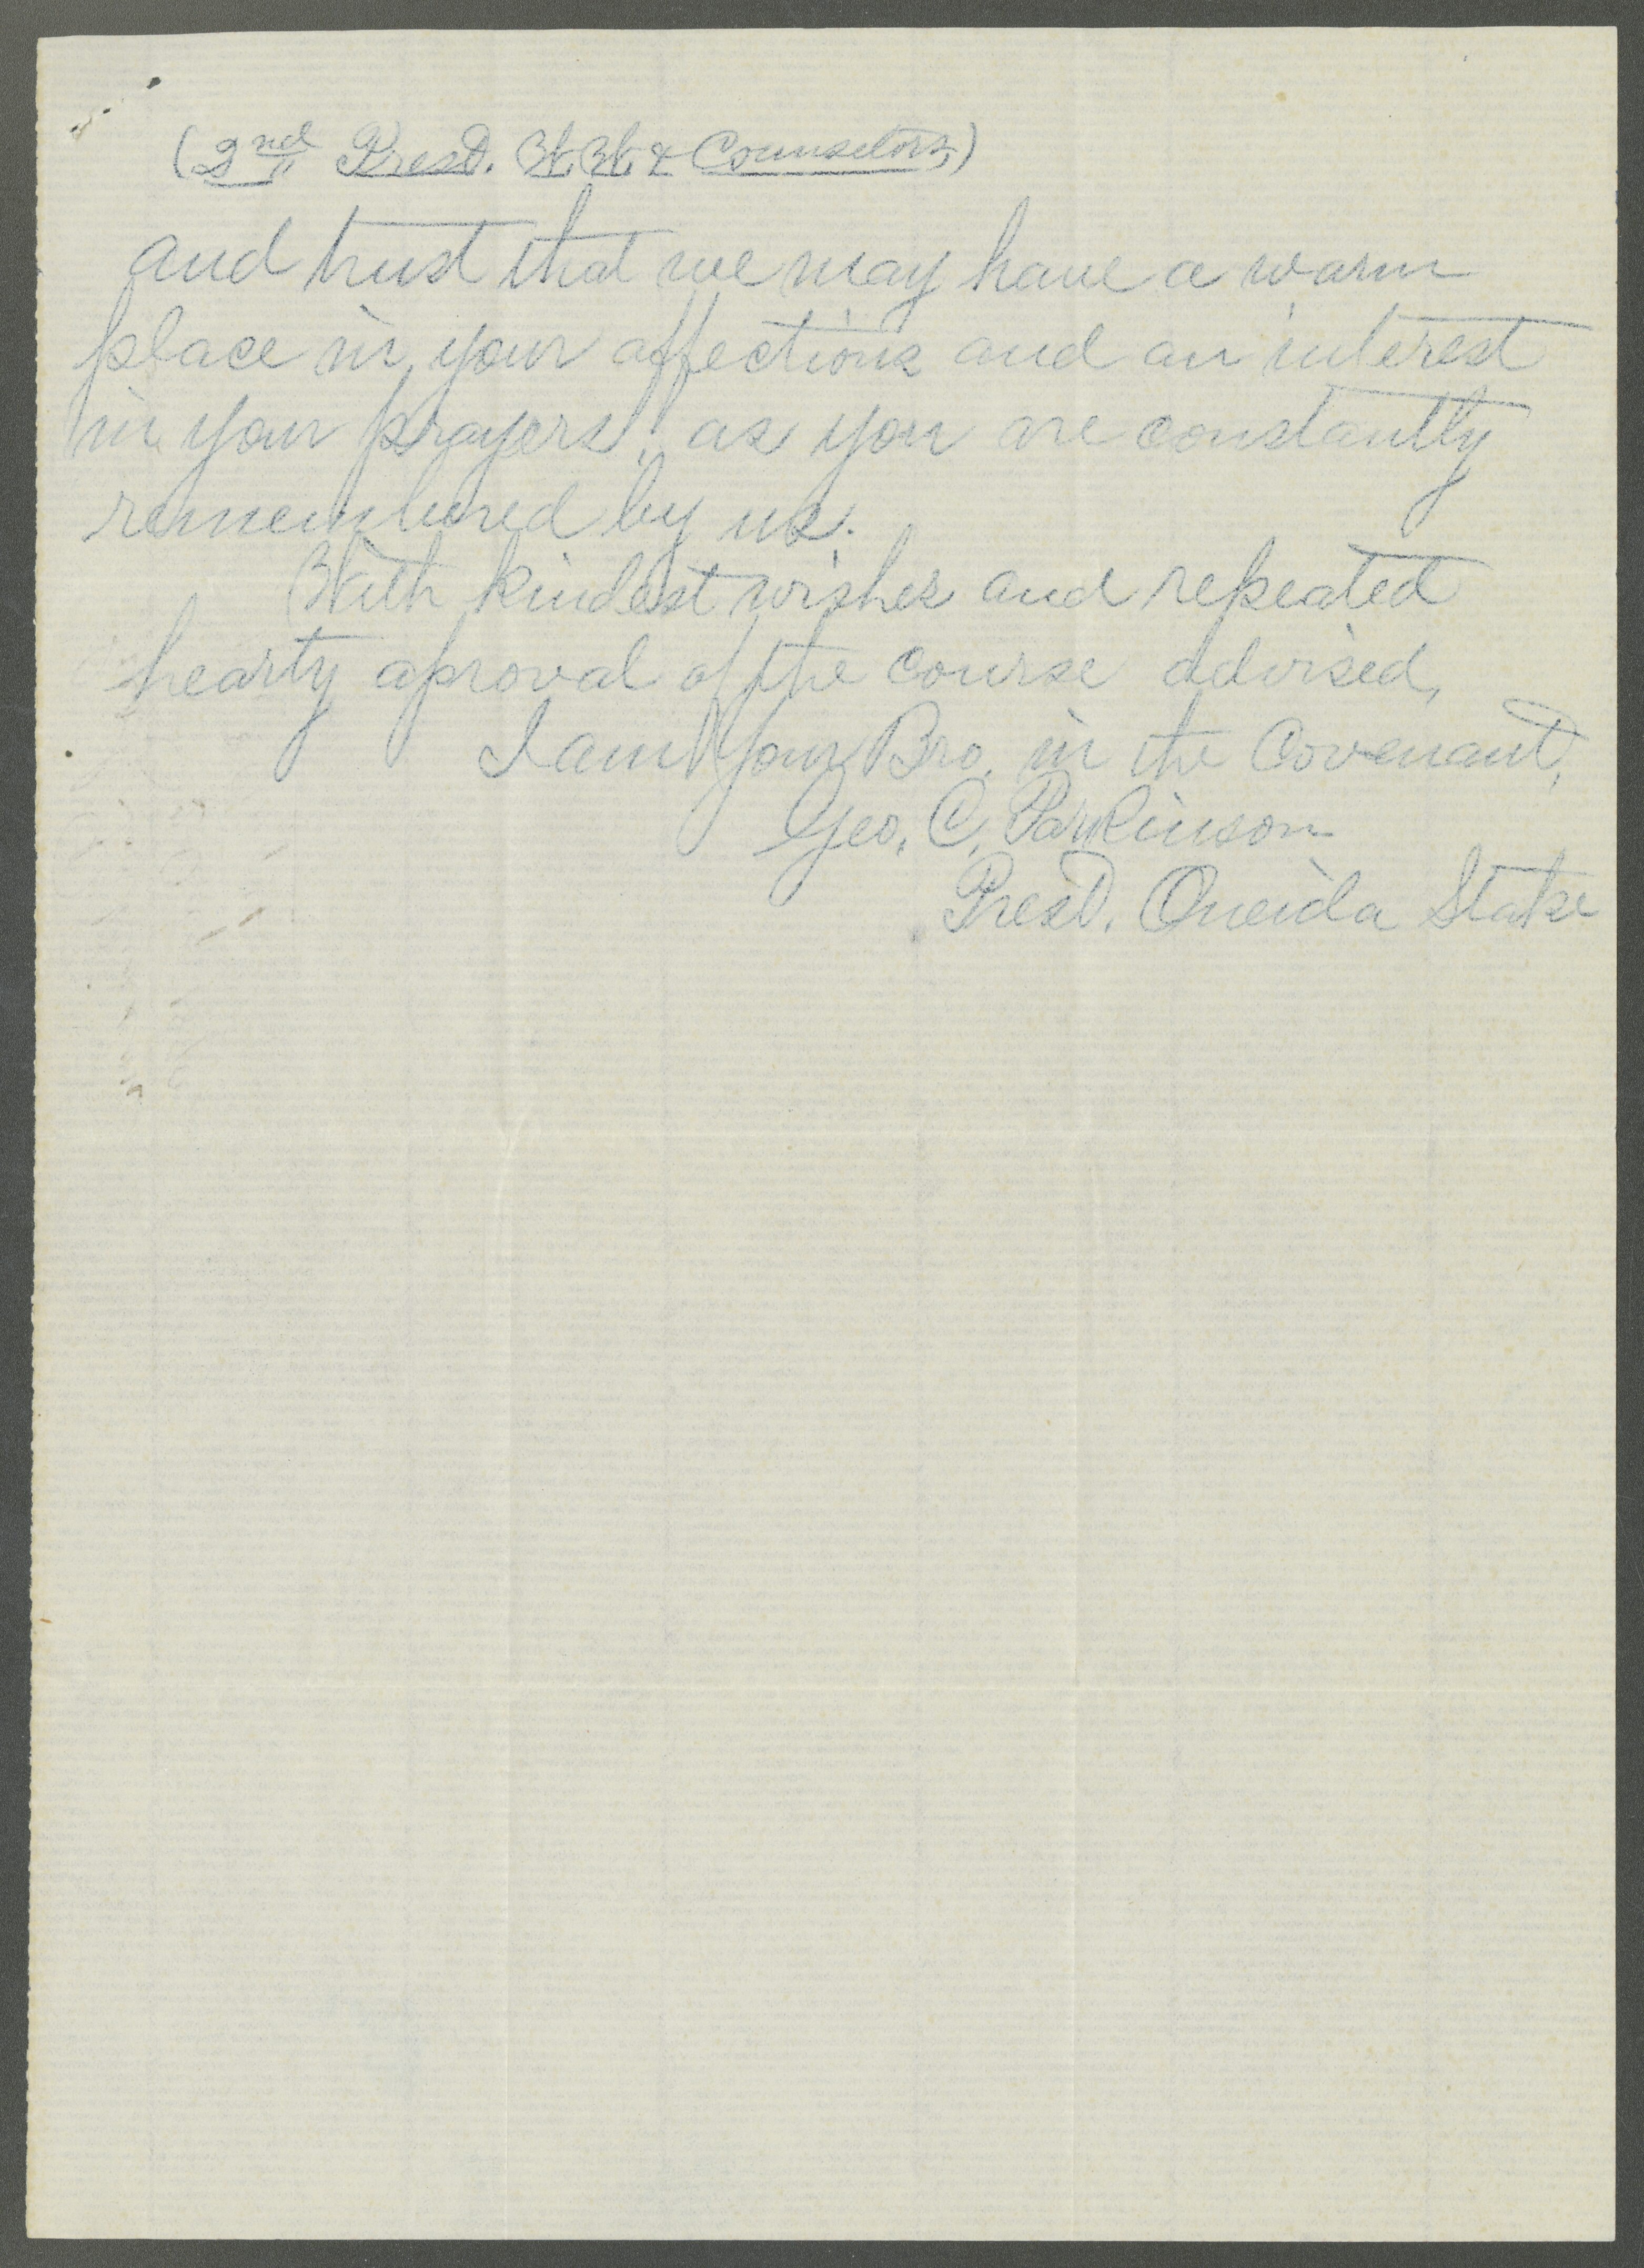 (2nd Presd. W. W. & Counselors,)
and trust that we may have a warm
place in your affections and an interest
in your prayers, as you are constantly
remembered by us.
With kindest wishes and repeated
hearty aproval of the course advised,
I am Your Bro. in the Covenant,
Geo. C. Parkinson
Presd. Oneida Stake